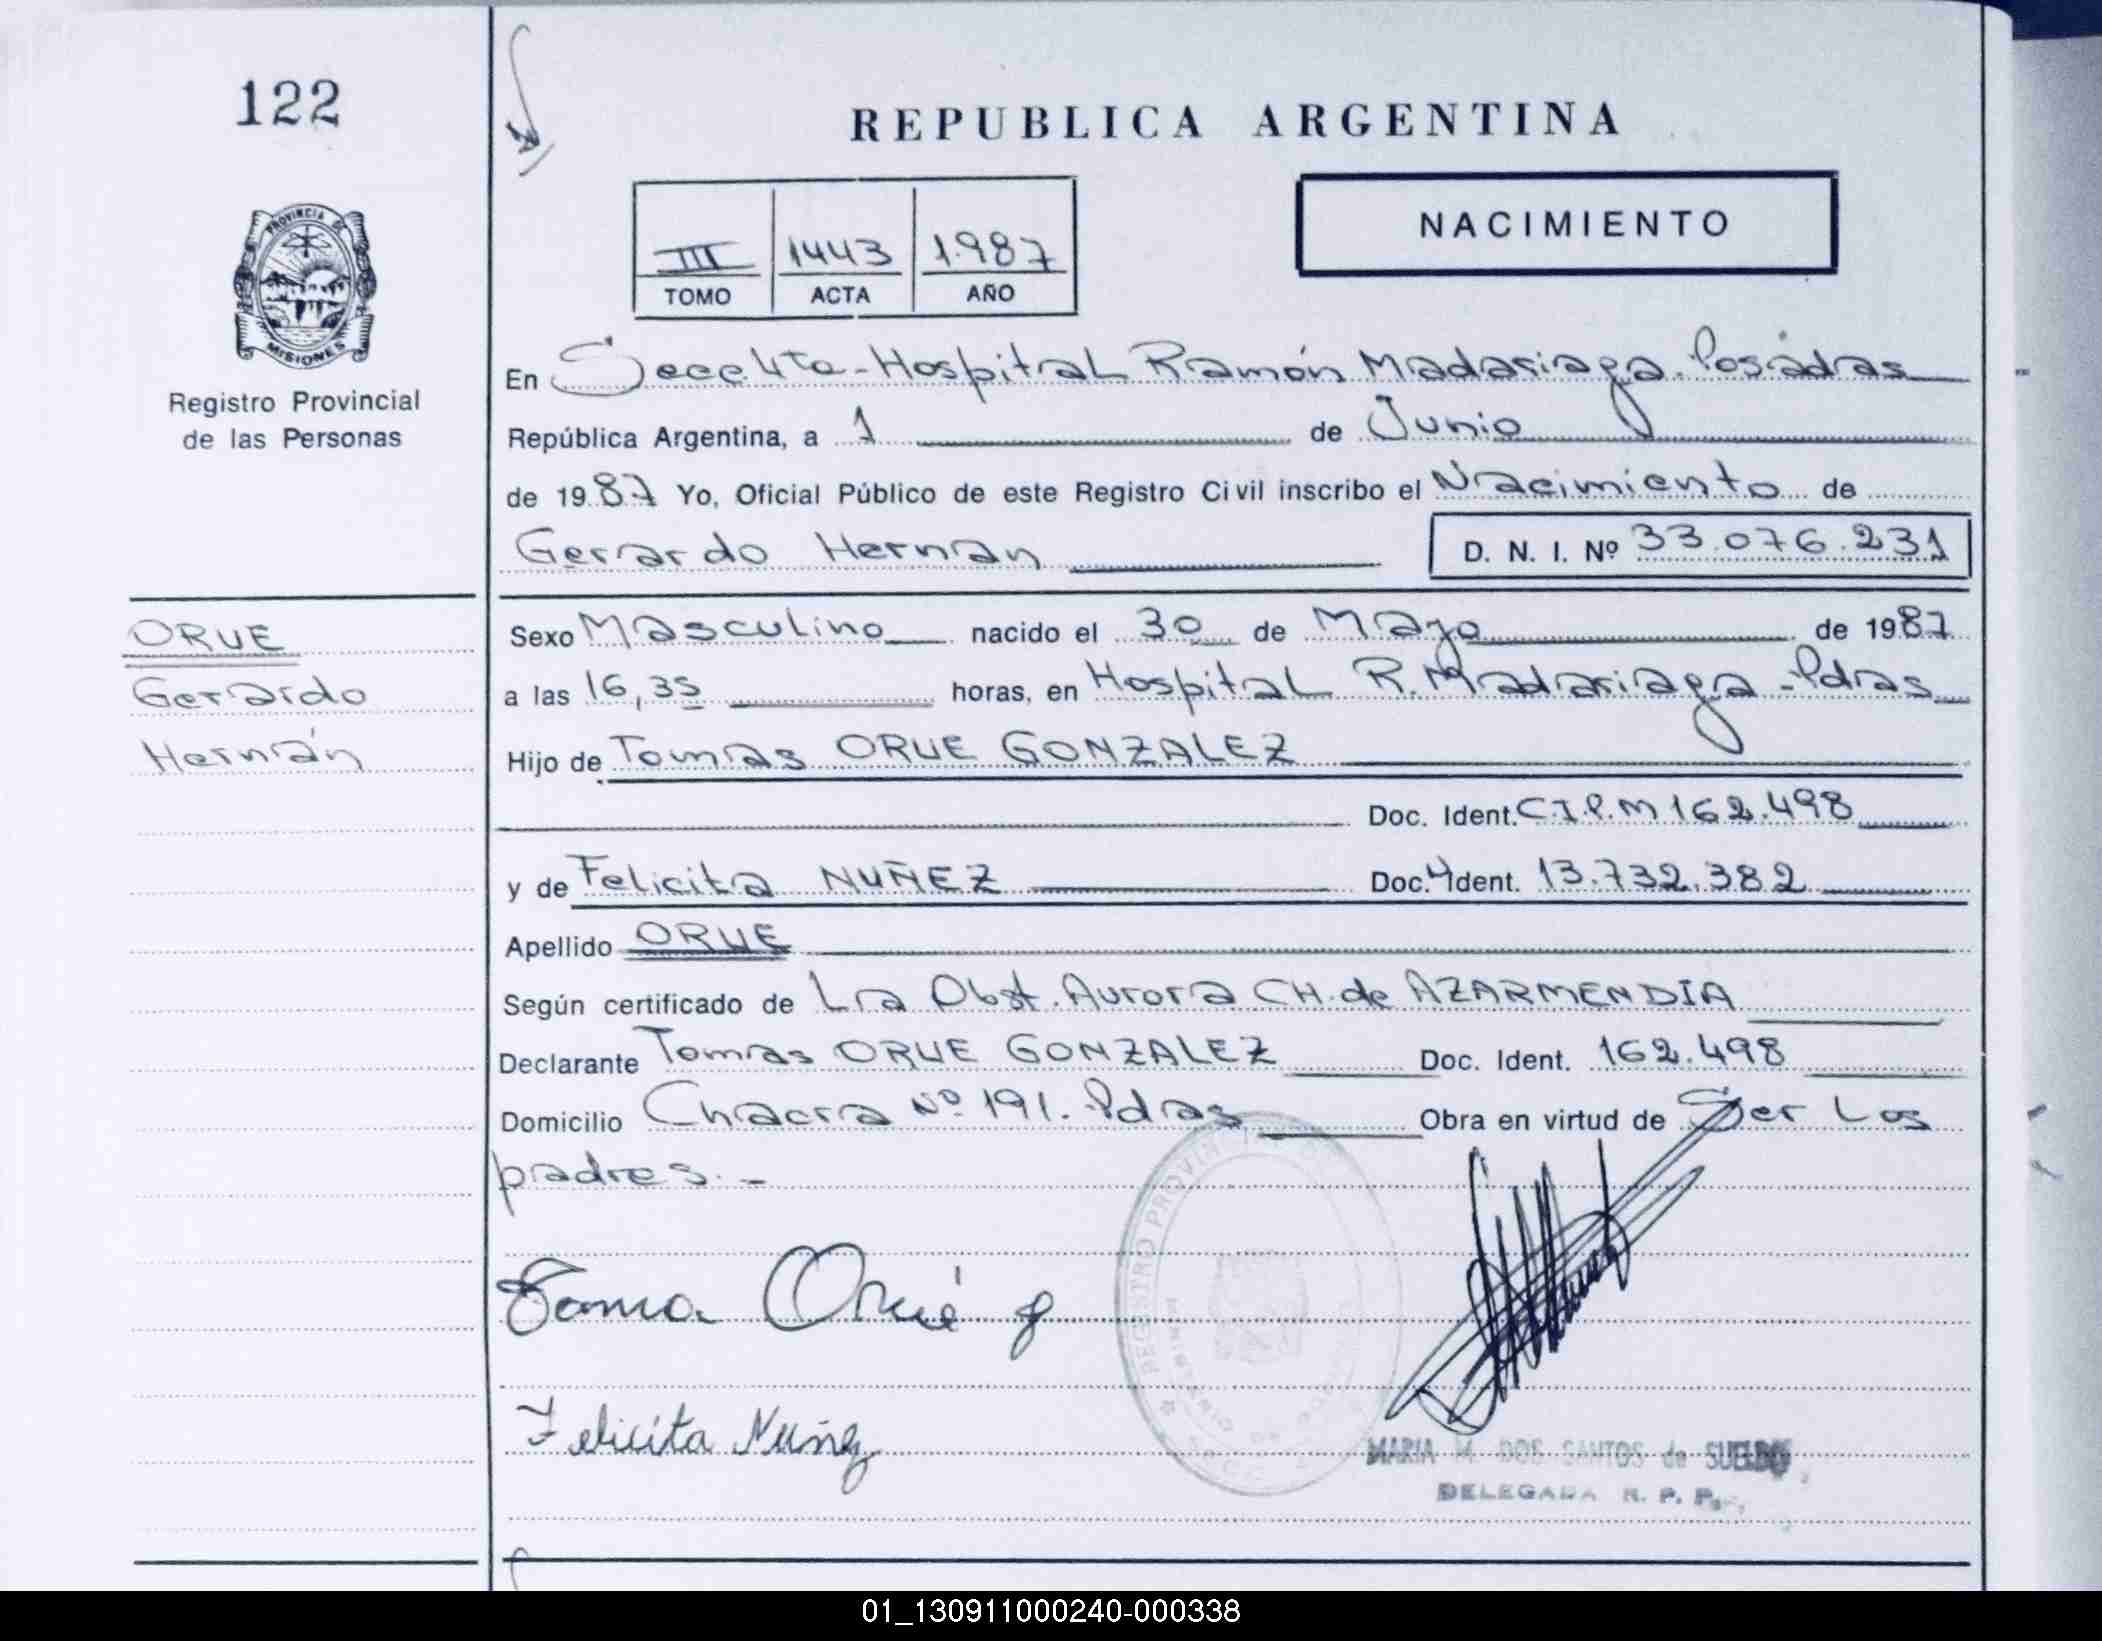 122
REPUBLICA ARGENTINA
NACIMIENTO
III 1443 1.987
TOMO ACTA AÑO
PROVINCIA DE
MISIONES
Registro Provincial
de las Personas
En Secc 4ta - Hospital Ramón Madariaga. Posadas
República Argentina, a 1 de Junio
de 1987 Yo, Oficial Público de este Registro Civil inscribo el Nacimiento de
Gerardo Hernan D. N. I. Nº 33.076.231
ORUE
Gerardo
Hernán
Sexo Masculino nacido el 30 de Mayo de 1987
a las 16,35 horas, en Hospital R. Madariaga - Pdas
Hijo de Tomas ORUE GONZALEZ
Doc. Ident. C.I.P.M 162.498
y de Felicita NUÑEZ Doc. Ident. 13.732.382
Apellido ORUE
Según certificado de La Obst. Aurora CH. de AZARMENDIA
Declarante Tomas ORUE GONZALEZ Doc. Ident. 162.498
Domicilio Chacra Nº 191. Pdas Obra en virtud de Ser Los
padres. -
Toma Orué g
REGISTRO PROVIN
Felicita Nuñez
MARIA M. DOS SANTOS de SUELDO
DELEGADA R. P. P.
01_130911000240-000338